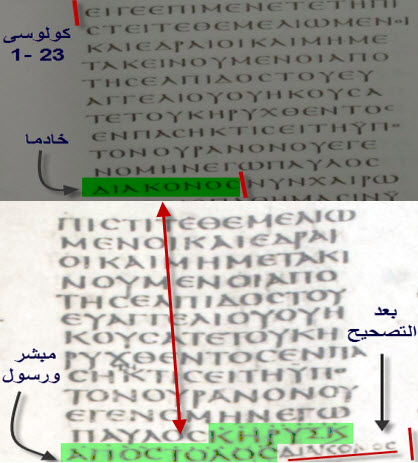 كولوسى
1- 23
ΕΙΓΕΕΠΙΜΕΝΕΤΕΤΗΠΙ
CΤΕΙΤΕΘΕΜΕΛΙΩΜΕΝΟΙ
ΚΑΙΕΔΡΑΙΟΙΚΑΙΜΗΜΕ
ΤΑΚΕΙΝΟΥΜΕΝΟΙΑΠΟ
ΤΗCΕΛΠΙΔΟCΤΟΥΕΥ
ΑΓΓΕΛΙΟΥΟΥΗΚΟΥCΑ
ΤΕΤΟΥΚΗΡΥΧΘΕΝΤΟC
ΕΝΠΑCΗΚΤΙCΕΙΤΗΫΠΟ
ΤΟΝΟΥΡΑΝΟΝΟΥΕΓΕ
ΝΟΜΗΝΕΓΩΠΑΥΛΟC
خادما
ΔΙΑΚΟΝΟCΝΥΝΧΑΙΡΩ
ΠΙCΤΙΤΕΘΕΜΕΛΙΩ
ΜΕΝΟΙΚΑΙΕΔΡΑΙ
ΟΙΚΑΙΜΗΜΕΤΑΚΙ
ΝΟΥΜΕΝΟΙΑΠΟ
ΤΗCΕΛΠΙΔΟCΤΟΥ
ΕΥΑΓΓΕΛΙΟΥΟΥΗ
ΚΟΥCΑΤΕΤΟΥΚΗ
ΡΥΧΘΕΝΤΟCΕΝΠΑ
CΗΚΤΙCΕΙΤΗΫΠΟ
ΤΟΝΟΥΡΑΝΟΝΟΥ
ΕΓΕΝΟΜΗΝΕΓΩ
ΠΑΥΛΟCΚΗΡΥΞΚ
ΑΠΟCΤΟΛΟCΔΙΑΚΟΝΟC
بعد
التصحيح
مبشر
ورسول